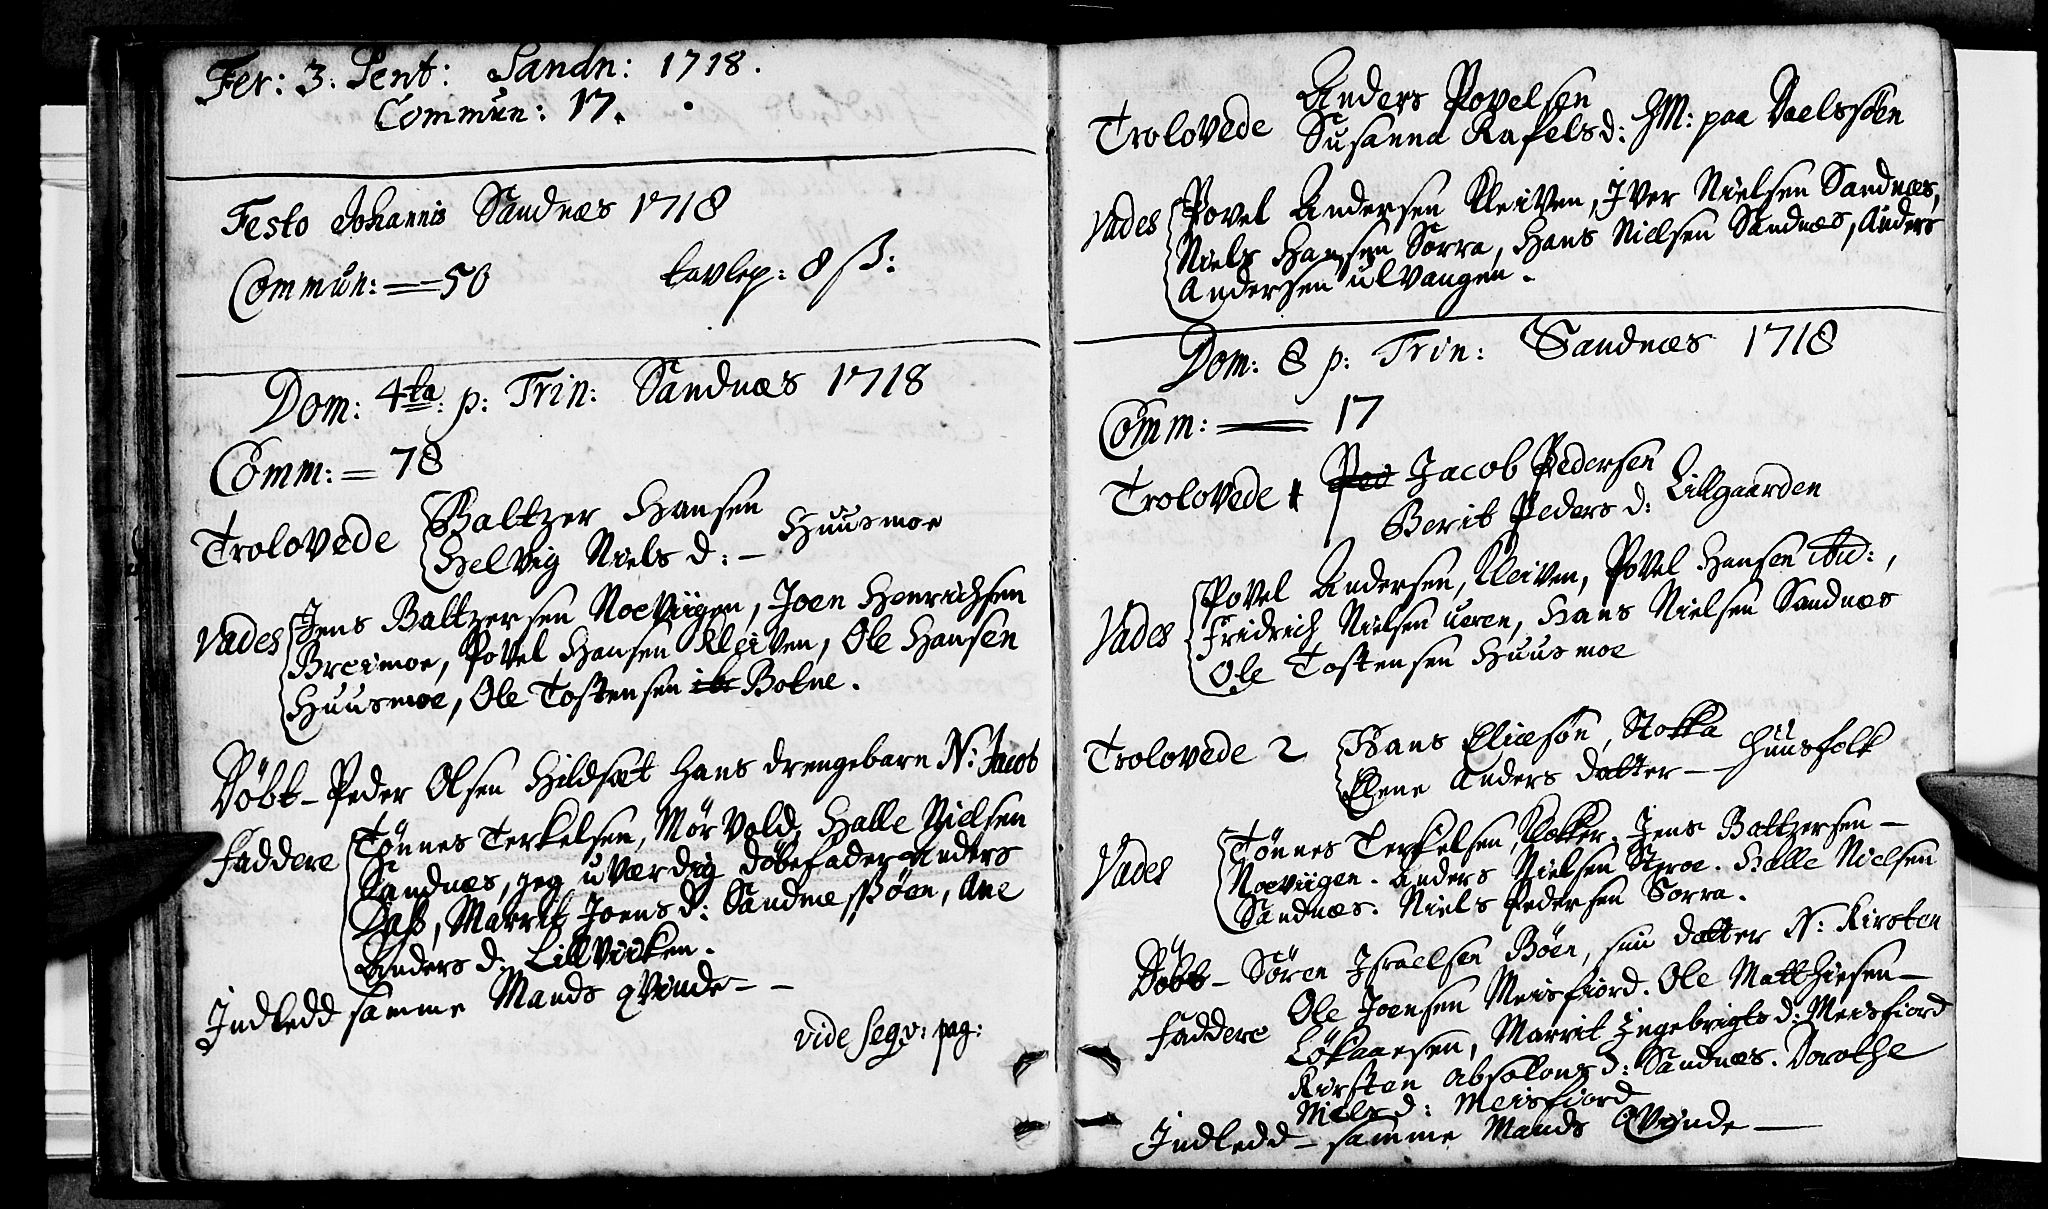 Fer: 3. Pent: Sandn: 1718.
Commun: 17.
Festo Johannis Sandnæs 1718
Commun: == 50 tavlep: 8 ß:
Dom: 4ta: p: Trin: Sandnæs 1718
Comm: = 78
Trolovede Baltzer Hansen
Helvig Niels d: – Huusmoe
Vades Jens Baltzersen Noeviigen, Joen Henrichsen
Breimoe, Povel Hansen Kleiven, Ole Hansen
Huusmoe, Ole Tostensen Botne.
Döbt – Peder Olsen Hildsæt hans drengebarn N: Jacob
Faddere Tönnes Terkelsen, Mörvold, Halle Nielsen
Sandnæs, jeg uværdig döbefader Anders
Dass, Marrit Joens d: Sandnessöen, Ane
Anders d: Lillviiken.
Indledd samme Mands qvinde – –
vide seqv: pag:
Anders Povelsen
Trolovede Susanna Rafelsd: HM: paa
Vades Povel Andersen Kleiven, Iver Nielsen Sandnæs,
Niels Hansen Sørra, Hans Nielsen Sandnæs, Anders
Andersen ulvangen.
Dom: 8 p: Trin: Sandnæs 1718
Comm: == 17
Trolovede 1 Ped Jacob Pedersen
Berit Peders d: Lillgaarden
Vades Povel Andersen, Kleiven, Povel Hansen ibid:,
Fridrich Nielsen uren, Hans Nielsen Sandnæs
Ole Tostensen Huusmoe
Trolovede 2 Hans Eliæsön, Stokka
Elene Anders datter – Huusfolk
Vades Tönnes Terkelsen, Jens Baltzersen –
Noeviigen. Anders Nielsen Stroe. Halle Nielsen
Sandnæs. Niels Pedersen Sørra.
Döbt – Sören Israelsen Böen, sin datter N: Kirsten
Ole Joensen Meisfiord. Ole Matthiesen –
Faddere Lökaaesen, Marrit Ingebrigts d: Meisfiord
Kirsten Absolons d: Sandnæs. Dorothe
Niels d: Meisfiord
Indledd – samme Mands Qvinde –